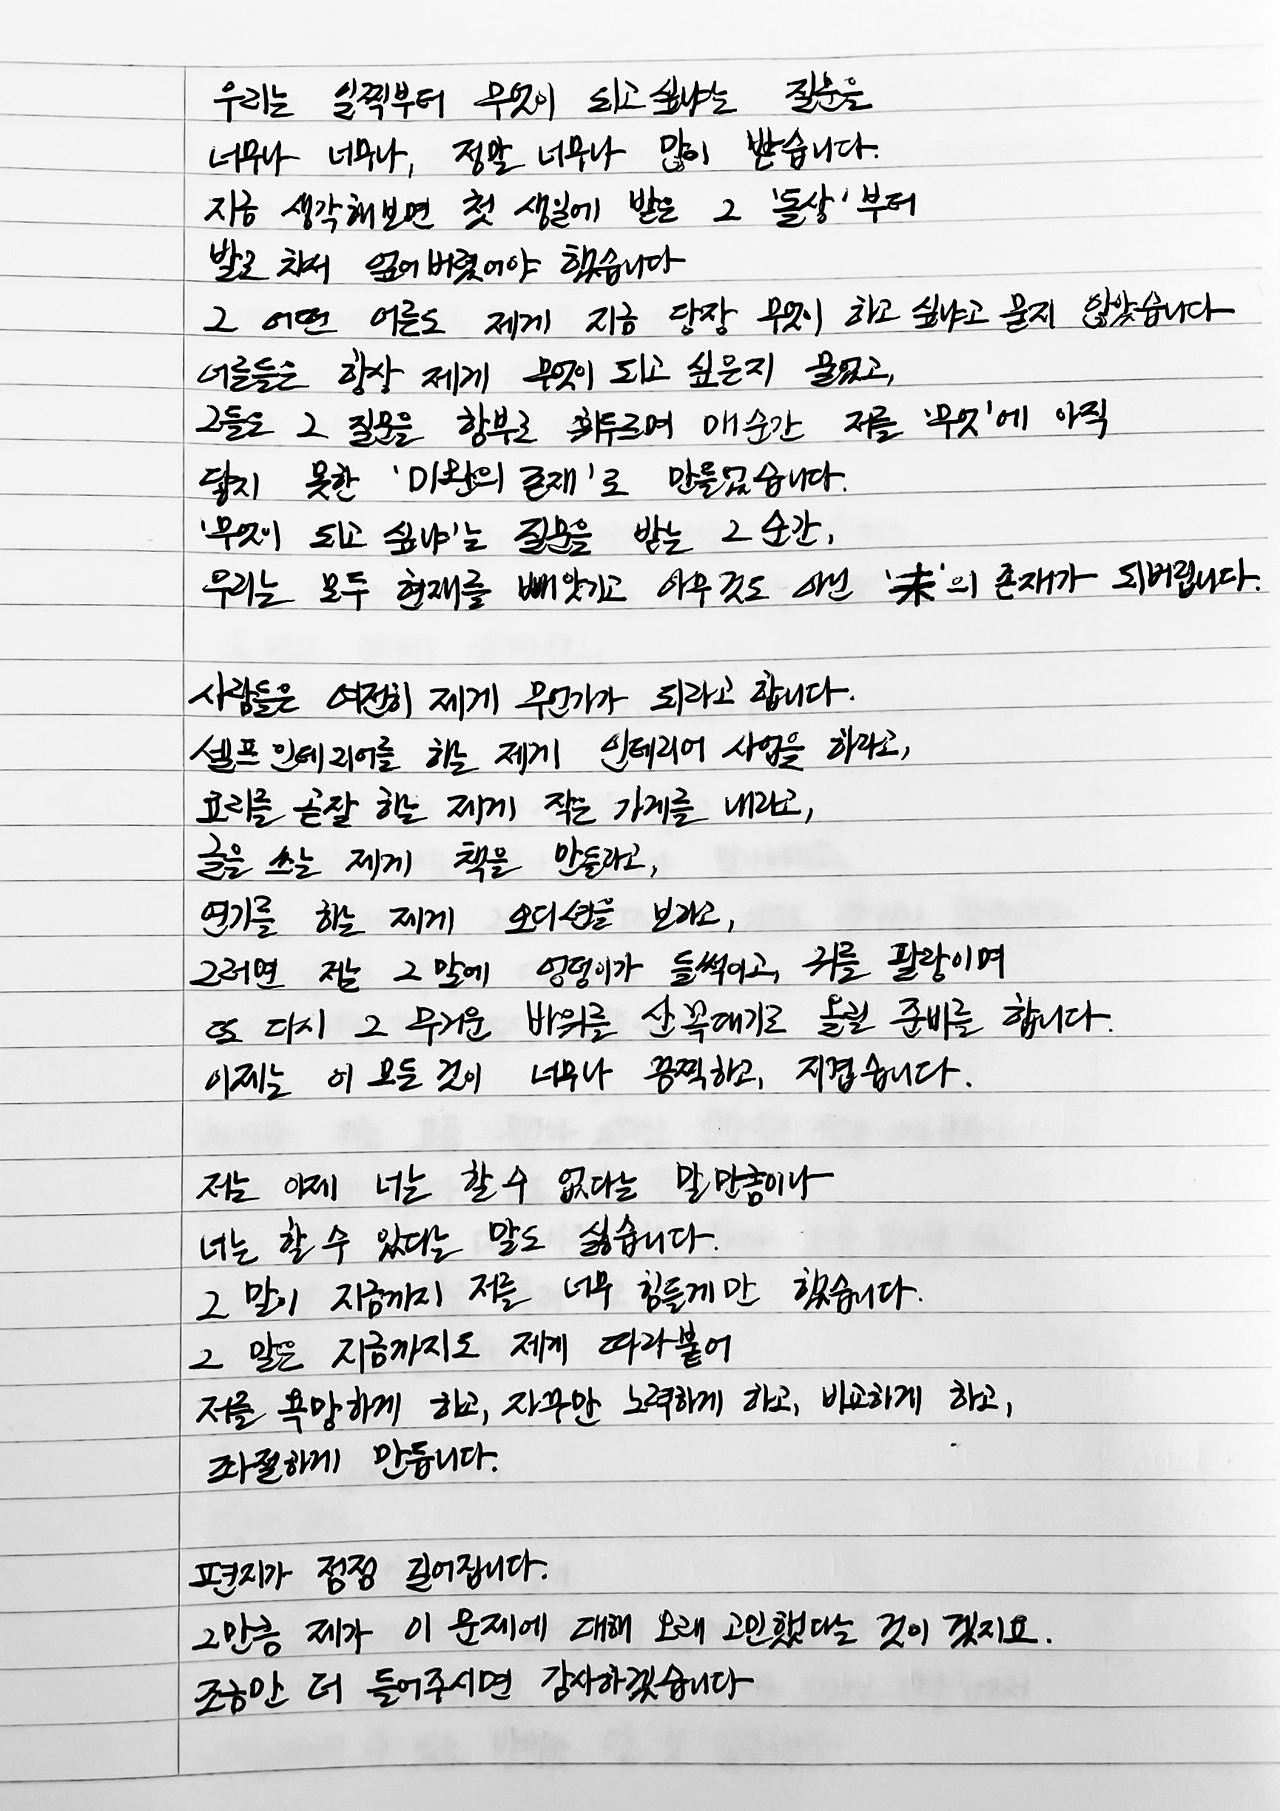 우리는 일찍부터 무엇이 되고 싶냐는 질문을
너무나 너무나, 정말 너무나 많이 받습니다.
지금 생각해보면 첫 생일에 받은 그 '돌상'부터
발로 차서 엎어버렸어야 했습니다
그 어떤 어른도 제게 지금 당장 무엇이 하고 싶냐고 묻지 않았습니다
어른들은 항상 제게 무엇이 되고 싶은지 물었고,
그들은 그 질문을 함부로 휘두르며 매순간 저를 '무엇'에 아직
닿지 못한 '미완의 존재'로 만들었습니다.
'무엇이 되고 싶냐'는 질문을 받는 그 순간,
우리는 모두 현재를 빼앗기고 아무것도 아닌 '未'의 존재가 되버립니다.
사람들은 여전히 제게 무언가가 되라고 합니다.
셀프 인테리어를 하는 제게 인테리어 사업을 하라고,
요리를 곧잘 하는 제게 작은 가게를 내라고,
글을 쓰는 제게 책을 만들라고,
연기를 하는 제게 오디션을 보라고,
그러면 저는 그 말에 엉덩이가 들썩이고, 귀를 팔랑이며
또 다시 그 무거운 바위를 산 꼭대기로 올릴 준비를 합니다.
이제는 이 모든 것이 너무나 끔찍하고, 지겹습니다.
저는 이제 너는 할 수 없다는 말 만큼이나
너는 할 수 있다는 말도 싫습니다.
그 말이 지금까지 저를 너무 힘들게만 했습니다.
그 말은 지금까지도 제게 따라붙어
저를 욕망하게 하고, 자꾸만 노력하게 하고, 비교하게 하고,
좌절하게 만듭니다.
편지가 점점 길어집니다.
그만큼 제가 이 문제에 대해 오래 고민했다는 것이 겠지요.
조금만 더 들어주시면 감사하겠습니다